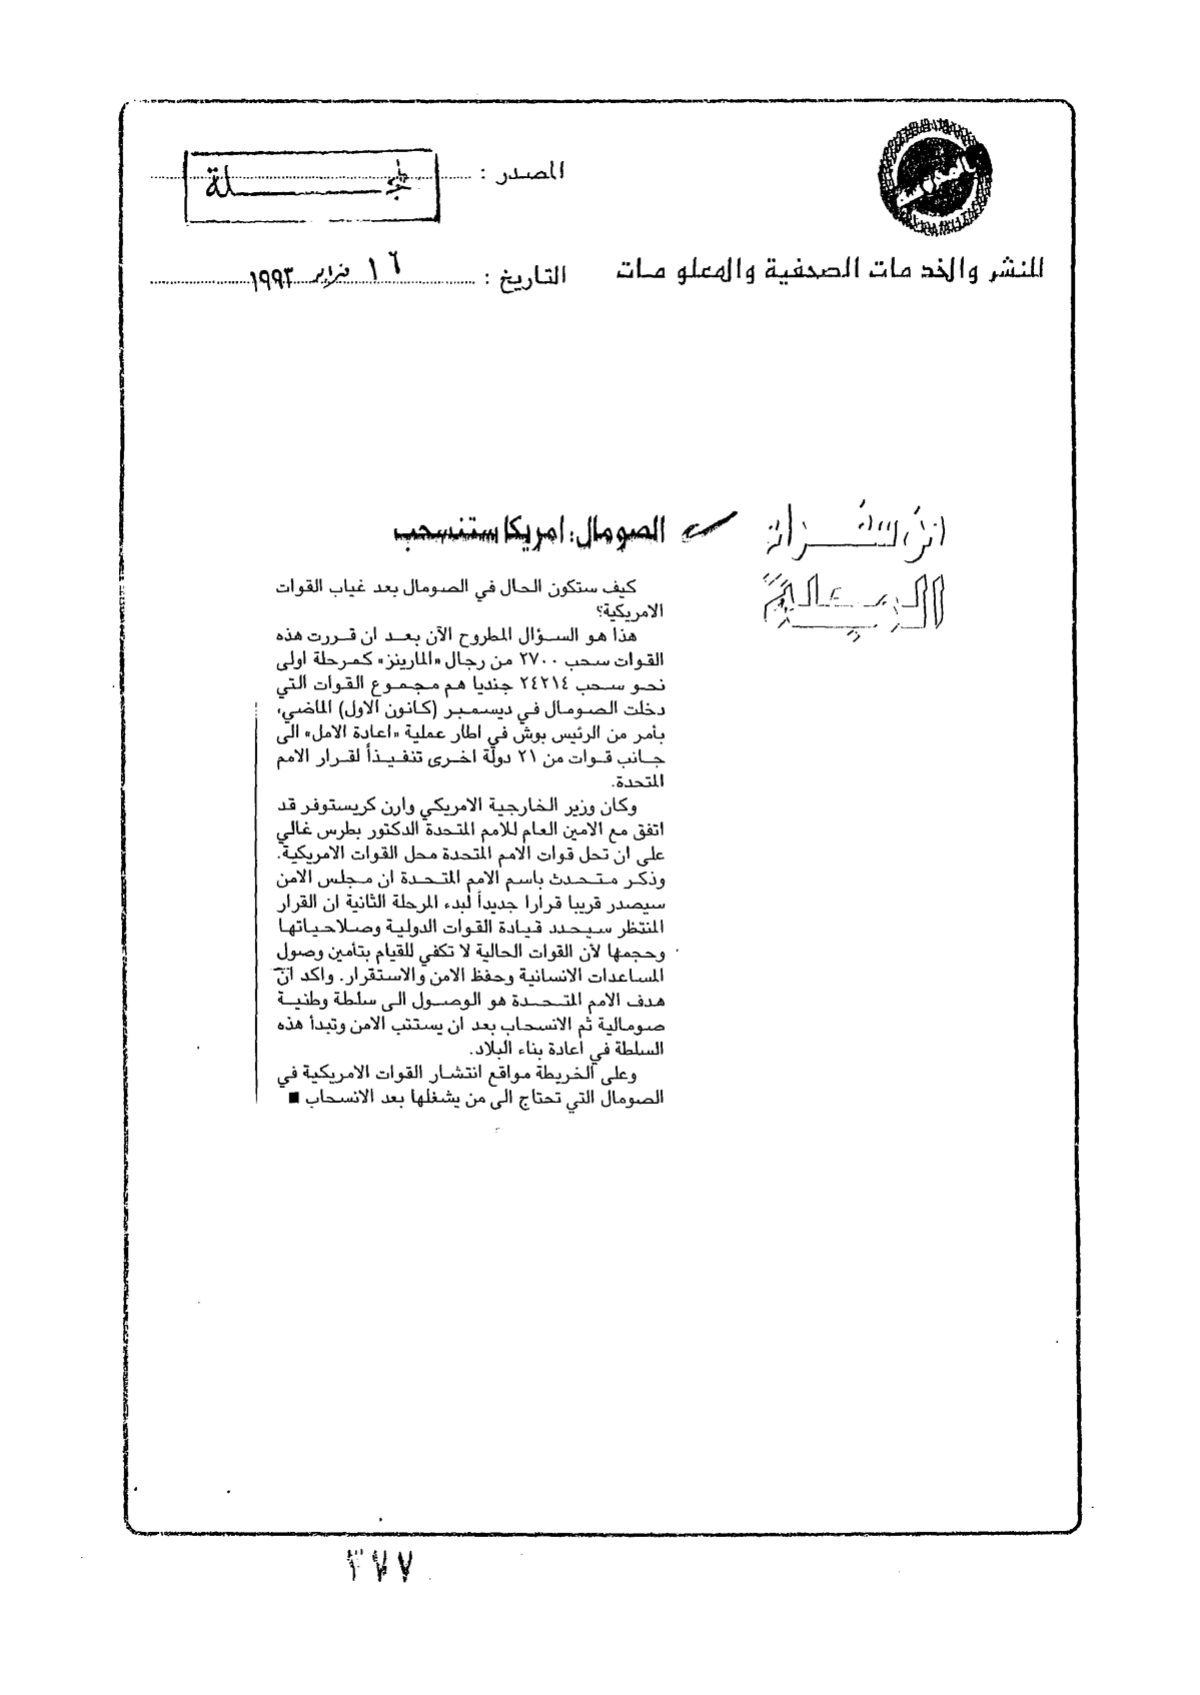 المصدر :
المجلة
للنشر والخدمات الصحفية والمعلومات
التاريخ : ١٦ فبراير ١٩٩٣
الصومال: امريكا ستنسحب
كيف ستكون الحال في الصومال بعد غياب القوات
الامريكية؟
هذا هو السؤال المطروح الآن بعد ان قررت هذه
القوات سحب ٢٧٠٠ من رجال «المارينز» كمرحلة اولى
نحو سحب ٢٤٢١٤ جنديا هم مجموع القوات التي
دخلت الصومال في ديسمبر (كانون الاول) الماضي،
بأمر من الرئيس بوش في اطار عملية «اعادة الامل» الى
جانب قوات من ٢١ دولة اخرى تنفيذاً لقرار الامم
المتحدة.
وكان وزير الخارجية الامريكي وارن كريستوفر قد
اتفق مع الامين العام للامم المتحدة الدكتور بطرس غالي
على ان تحل قوات الامم المتحدة محل القوات الامريكية.
وذكر متحدث باسم الامم المتحدة ان مجلس الامن
سيصدر قريبا قرارا جديداً لبدء المرحلة الثانية ان القرار
المنتظر سيحدد قيادة القوات الدولية وصلاحياتها
وحجمها لأن القوات الحالية لا تكفي للقيام بتأمين وصول
المساعدات الانسانية وحفظ الامن والاستقرار. واكد ان
هدف الامم المتحدة هو الوصول الى سلطة وطنية
صومالية ثم الانسحاب بعد ان يستتب الامن وتبدأ هذه
السلطة في اعادة بناء البلاد.
وعلى الخريطة مواقع انتشار القوات الامريكية في
الصومال التي تحتاج الى من يشغلها بعد الانسحاب ■
٣٧٧